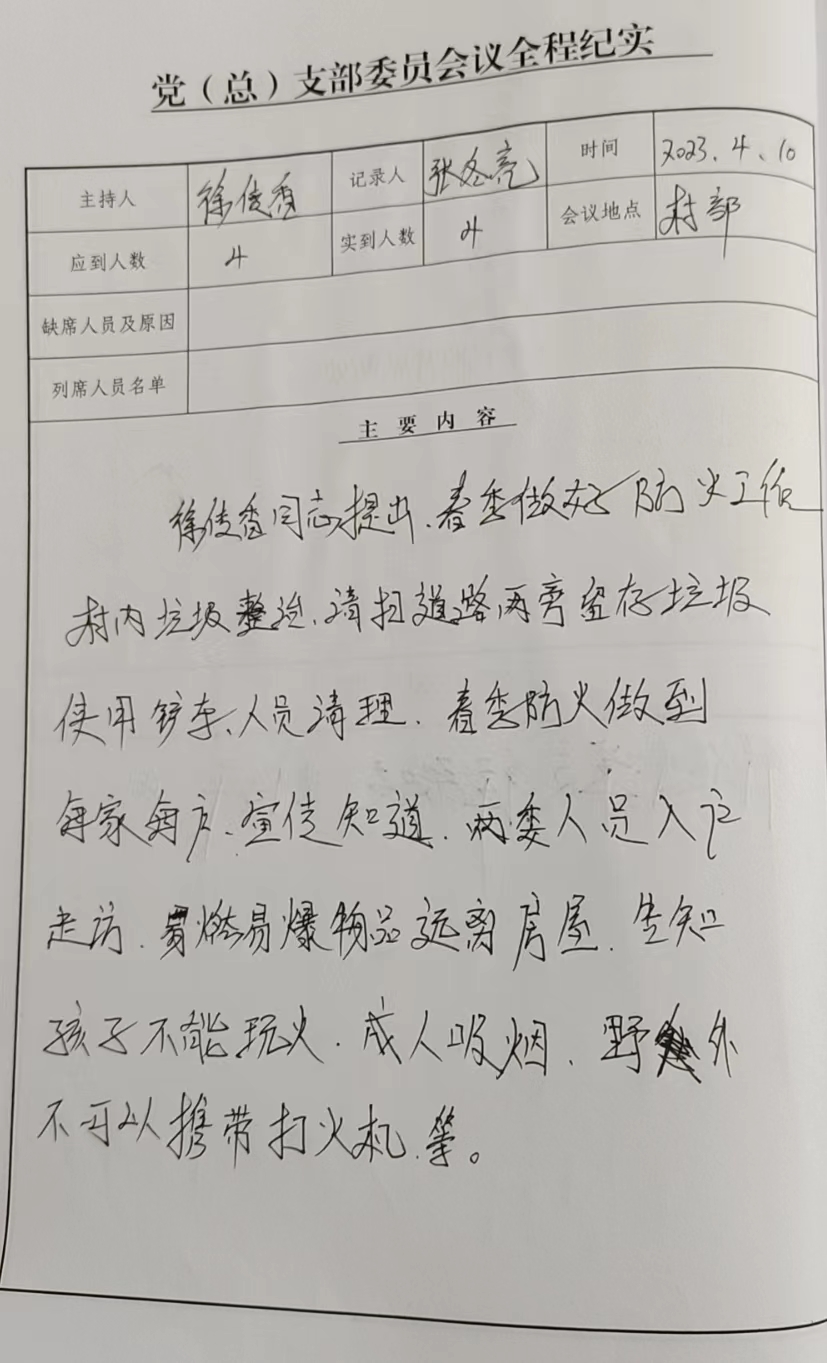 党（总）支部委员会议全程纪实
主持人 徐俊香 记录人 张冬亮 时间 2023.4.10
应到人数 4 实到人数 4 会议地点 村部
缺席人员及原因
列席人员名单
主要内容
徐俊香同志提出、春季做好防火工作
村内垃圾整治、清扫道路两旁留存垃圾
使用铲车、人员清理．春季防火做到
每家每户、宣传知道．两委人员入户
走访．易燃易爆物品远离房屋．告知
孩子不能玩火．成人吸烟．野外
不可以携带打火机．等。